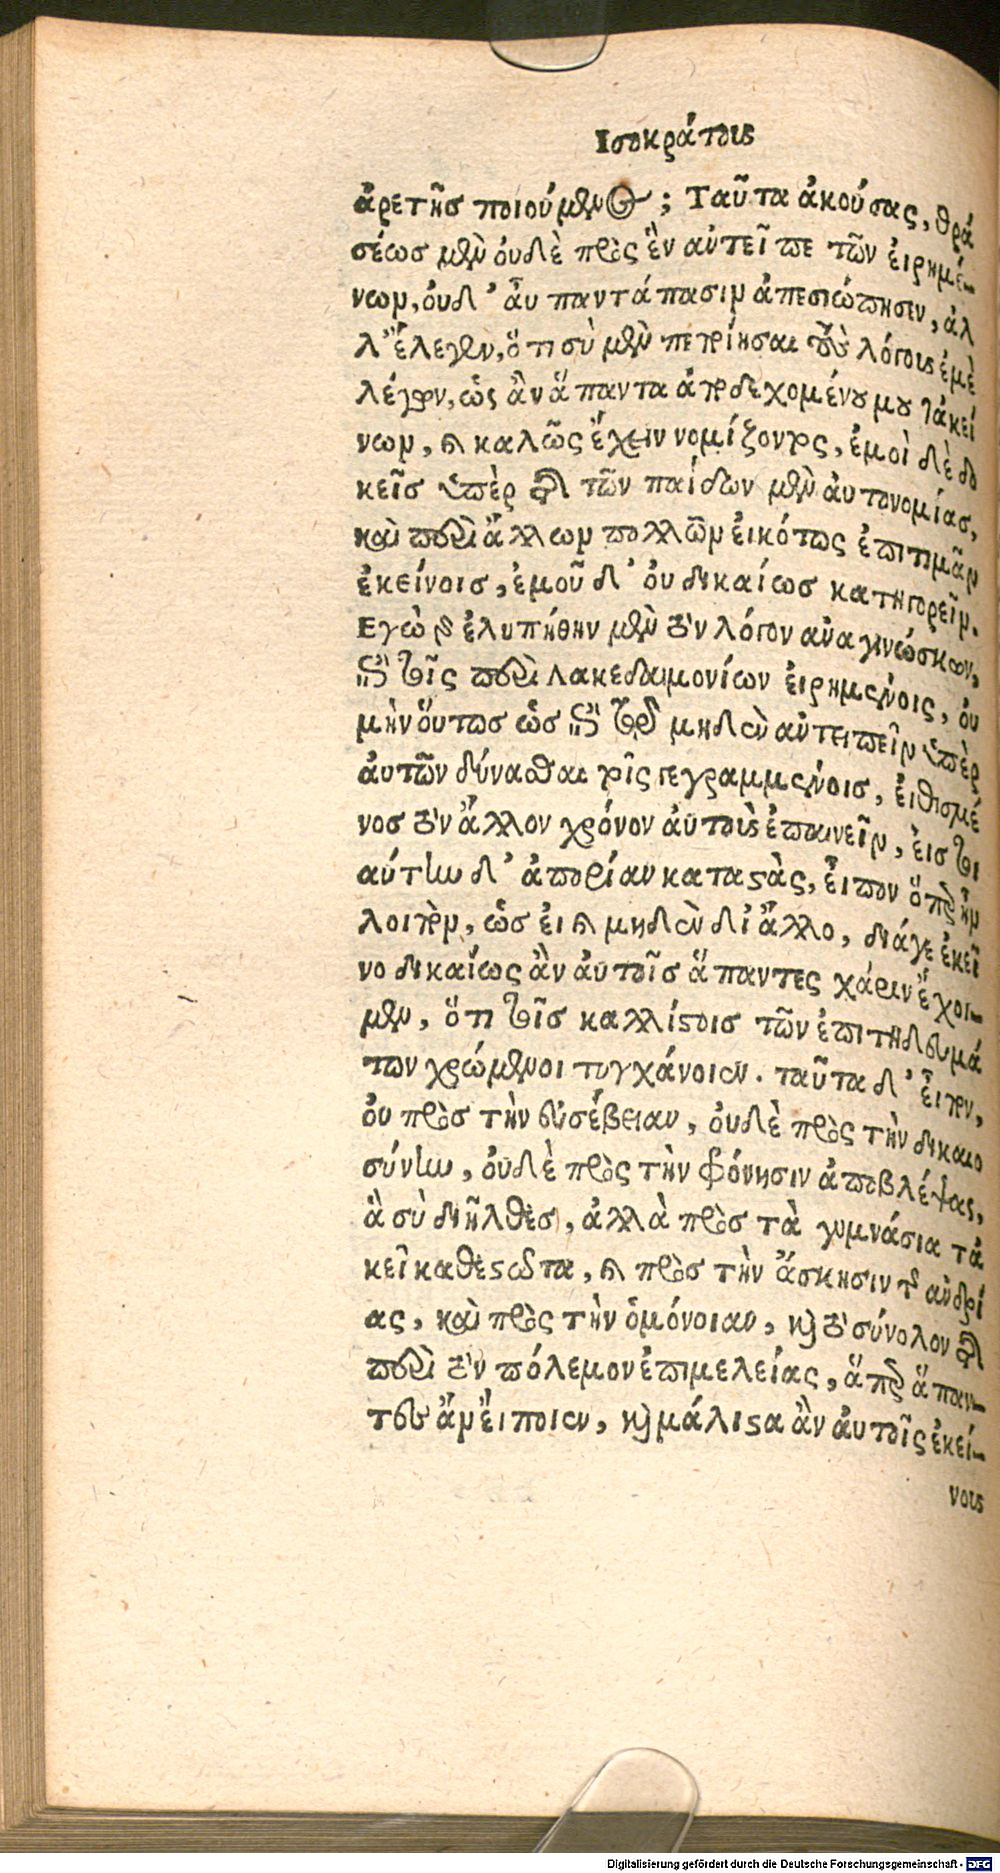 Ισοκράτους
ἀρετῆς ποιούμενος; Ταῦτα ἀκούσας, θρα
σέως μὲν ὀυδὲ πρὸς ἓν ἀντεῖπε τῶν ἐιρημέ-
νων, ὀυδ' ἂυ παντάπασιν ἀπεσιώπησεν, ἀλ
λ' ἔλεγεν, ὅτι σὺ μὲν πεποίησαι τοὺς λόγους ἐμὲ
λέγων, ὡς ἂν ἅπαντα ἀποδεχομένου μου τἀκεί
νων, καὶ καλῶς ἔχειν νομίζοντος, ἐμοὶ δὲ δο
κεῖς ὑπὲρ τῆς τῶν παίδων μὲν ἀυτονομίας,
καὶ περὶ ἄλλων πολλῶν ἐικότως ἐπιτιμᾶν
ἐκείνοις, ἐμοῦ δ' ὀυ δικαίως κατηγορεῖν.
Εγὼ γὰρ ἐλυπήθην μὲν τὸν λόγον ἀναγινώσκων,
ἐπὶ τοῖς περὶ Λακεδαιμονίων ἐιρημένοις, ὀυ
μὴν ὅυτως ὡς ἐπὶ τῷ μηδὲν ἀντειπεῖν ὑπὲρ
ἀυτῶν δύνασθαι τοῖς γεγραμμένοις, ἐιθισμέ
νος τὸν ἄλλον χρόνον ἀυτοὺς ἐπαινεῖν, ἐις τοι
αύτην δ' ἀπορίαν καταστὰς, ἐῖπον ὅπερ ἦν
λοιπὸν, ὡς ἐι καὶ μηδὲν δι' ἄλλο, διάγε ἐκεῖ
νο δικαίως ἂν ἀυτοῖς ἅπαντες χάριν ἔχοι-
μεν, ὅτι τοῖς καλλίστοις τῶν ἐπιτηδευμά
των χρώμενοι τυγχάνοιεν. ταῦτα δ' ἐῖπον,
ὀυ πρὸς τὴν ἐυσέβειαν, ὀυδὲ πρὸς τὴν δικαιο
σύνην, ὀυδὲ πρὸς τὴν φρόνησιν ἀποβλέψας,
ἃ σὺ διῆλθες, ἀλλὰ πρὸς τὰ γυμνάσια τἀ
κεῖ καθεστῶτα, καὶ πρὸς τὴν ἄσκησιν τῆς ἀνδρί
ας, καὶ πρὸς τὴν ὁμόνοιαν, καὶ τὸ σύνολον τῆς
περὶ τὸν πόλεμον ἐπιμελείας, ἅπερ ἅπαν-
τες ἂν ἔιποιεν, καὶ μάλιστα ἂν ἀυτοῖς ἐκεί-
νους
Digitalisierung gefördert durch die Deutsche Forschungsgemeinschaft - DFG